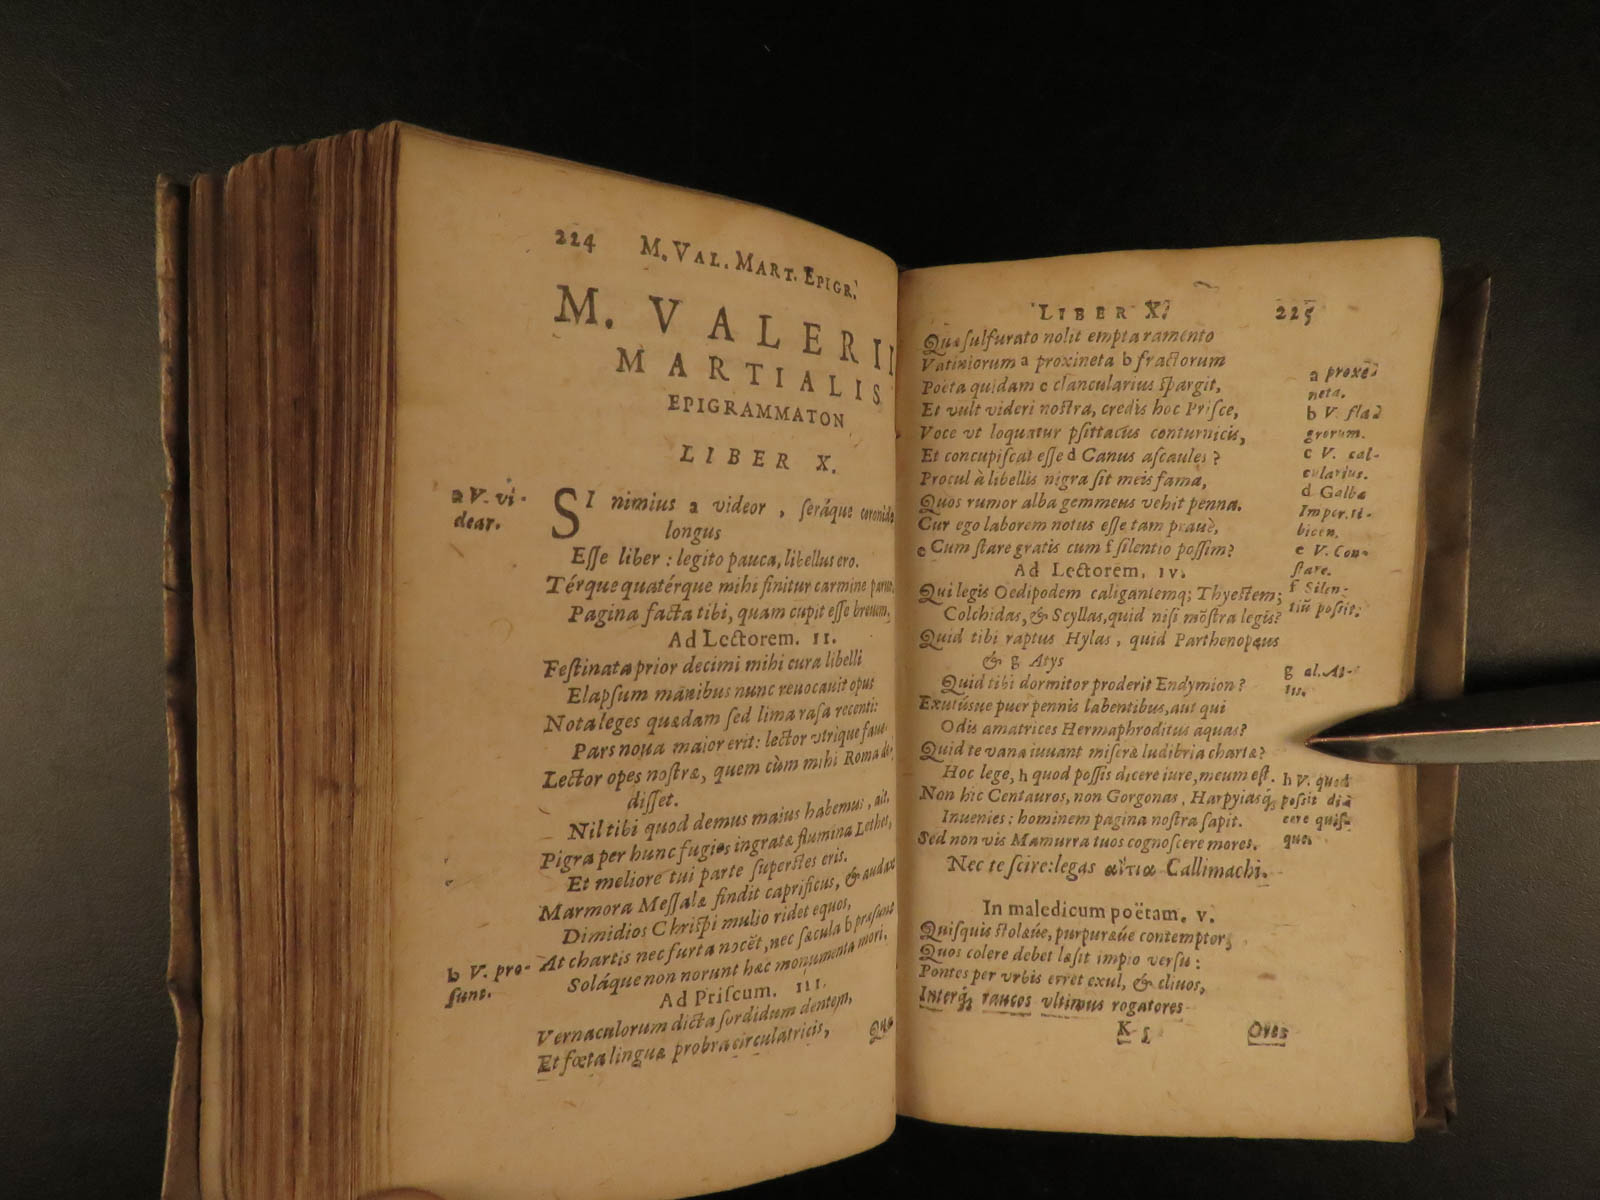 224 M. VAL. MART. EPIGR.
M. VALERII
MARTIALIS
EPIGRAMMATON
LIBER X.
a V. vi-
dear.
SI nimius a videor, seráque coronide
longus
Esse liber: legito pauca, libellus ero.
Térque quatérque mihi finitur carmine paruo
Pagina facta tibi, quam cupit esse breuem,
Ad Lectorem. II.
Festinata prior decimi mihi cura libelli
Elapsum manibus nunc reuocauit opus
Nota leges quædam sed lima rasa recenti:
Pars noua maior erit: lector vtrique faue.
Lector opes nostræ, quem cùm mihi Roma de-
disset.
Nil tibi quod demus maius habemus, ait.
Pigra per hunc fugies ingratæ flumina Lethes,
Et meliore tui parte superstes eris.
Marmora Messalæ findit caprificus, & audax
Dimidios Chrispi mulio ridet equos,
At chartis nec furta nocēt, nec sæcula b præsunt
b V. pro-
sunt.
Soláque non norunt hæc monumenta mori.
Ad Priscum. III.
Vernaculorum dicta sordidum dentem,
Et fœta linguæ probra circulatricis,
Quæ
LIBER X. 225
Quæ sulfurato nolit empta ramento
Vatiniorum a proxineta b fractorum
Poëta quidam c clancularius spargit,
Et vult videri nostra, credis hoc Prisce,
Voce vt loquatur psittacus conturnicis,
Et concupiscat esse d Canus ascaules?
Procul à libellis nigra sit meis fama,
Quos rumor alba gemmeus vehit penna.
Cur ego laborem notus esse tam prauè,
e Cum stare gratis cum f silentio possim?
a proxe-
neta.
b V. fla-
grorum.
c V. cal-
cularius.
d Galbæ
Imper. ti-
bicen.
e V. Con-
stare.
f Silen-
tiū possit.
Ad Lectorem, IV.
Qui legis Oedipodem caligantemq; Thyestem;
Colchidas, & Scyllas, quid nisi mōstra legis?
Quid tibi raptus Hylas, quid Parthenopæus
& g Atys
g al. At-
tis.
Quid tibi dormitor proderit Endymion?
Exutusue puer pennis labentibus, aut qui
Odis amatrices Hermaphroditus aquas?
Quid te vana iuuant miseræ ludibria chartæ?
Hoc lege, h quod possis dicere iure, meum est.
h V. quod
possit di-
cere quis-
que.
Non hic Centauros, non Gorgonas, Harpyiasq;
Inuenies: hominem pagina nostra sapit.
Sed non vis Mamurra tuos cognoscere mores.
Nec te scire: legas αἴτια Callimachi.
In maledicum poëtam. V.
Quisquis stolæúe, purpuræúe contemptor,
Quos colere debet læsit impio versu:
Pontes per vrbis erret exul, & cliuos,
Interq; raucos vltimus rogatores
K 5 Ores